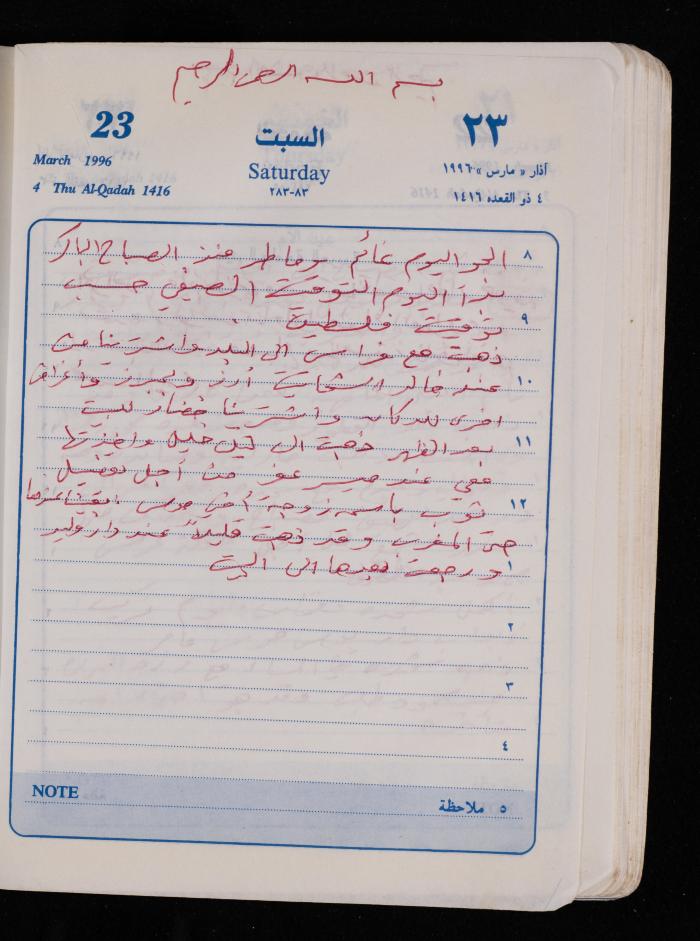 بسم الله الرحمن الرحيم
23 السبت ٢٣
March 1996 Saturday آذار «مارس» ١٩٩٦
4 Thu Al-Qadah 1416 ٨٣-٢٨٣ ٤ ذو القعده ١٤١٦
٨ الجو اليوم غائم وماطر منذ الصباح الباكر
بدأ اليوم التوقيت الصيفي حسب
٩ توقيت فلسطين .
ذهبت مع فراس الى البلد واشترينا من
١٠ عند خالد أرز و وأغراض
اخرى للدكان واشترينا خضار للبيت
١١ بعد الظهر ذهبت الى خليل واخذتها
معي عند من أجل تفصيل
١٢ ثوب باسمه زوجة أخي بقيت عندها
حتى المغرب وقد ذهبت قليلاً عند دار وليد
١ ورجعت بعدها الى البيت
٢
٣
٤
NOTE ٥ ملاحظة